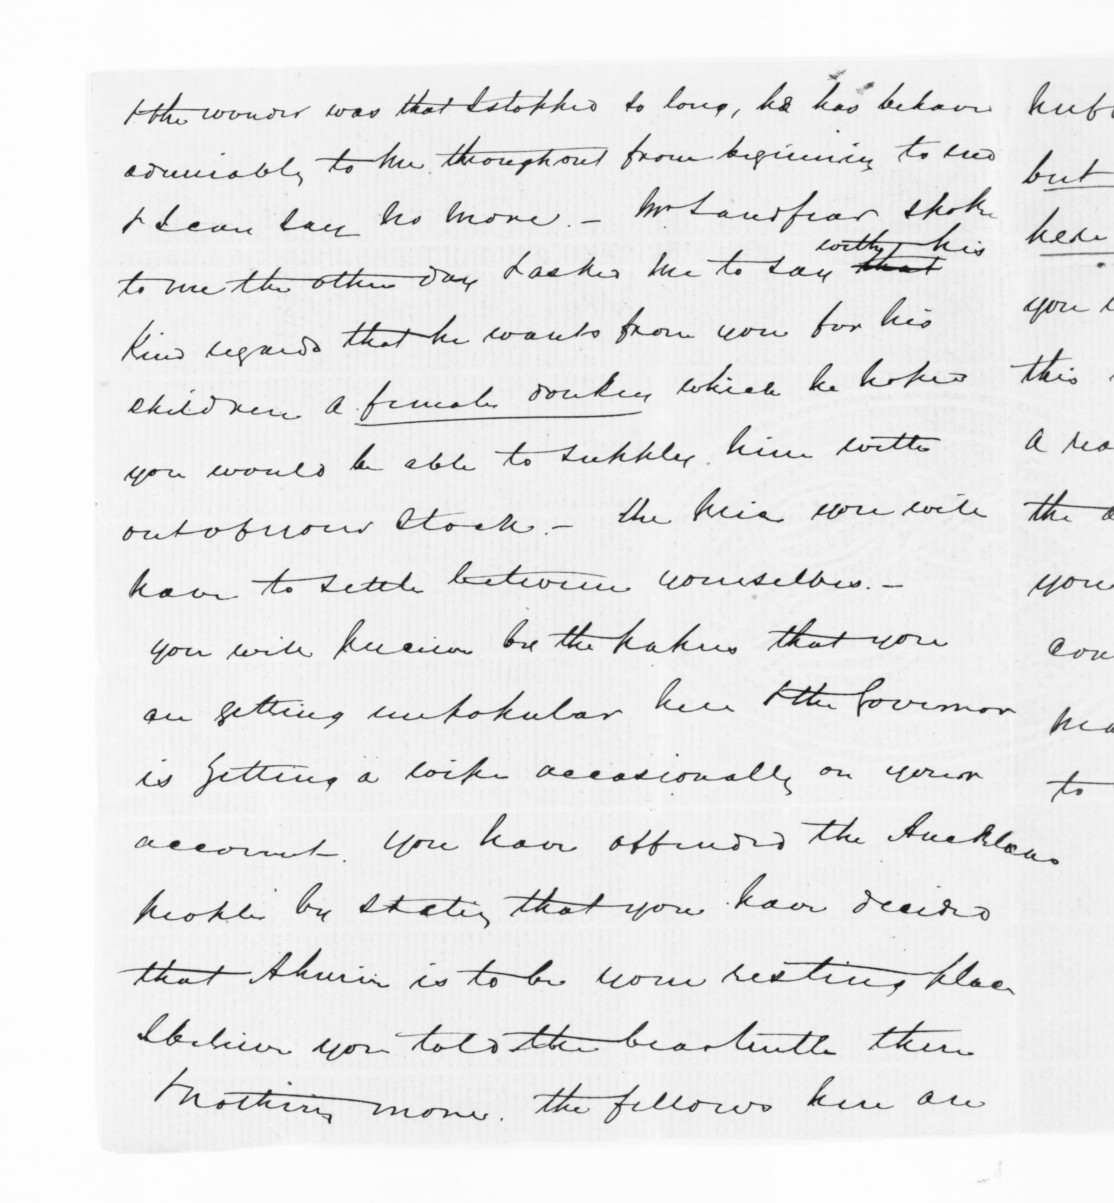 & the wonder was that I stopped so long, he has behaved
admirably to me throughout from beginning to end
& I can say no more. - Mr Sandfear spoke
to me the other day & asked me to say that with his
kind regards that he wants from you for his
children a female donkey which he hopes
you would be able to supply him with
out of your stock. - the price you will
have to settle between yourselves. -
you will perceive by the papers that you
are getting unpopular here & the Governor
is getting a wipe occasionally on your
account. you have offended the Auckland
people by stating that you have decided
that Ahuriri is to be your resting place
I believe you told the beastly there
& nothing more. the fellows here are
but
here
you
this
a
the
your
to